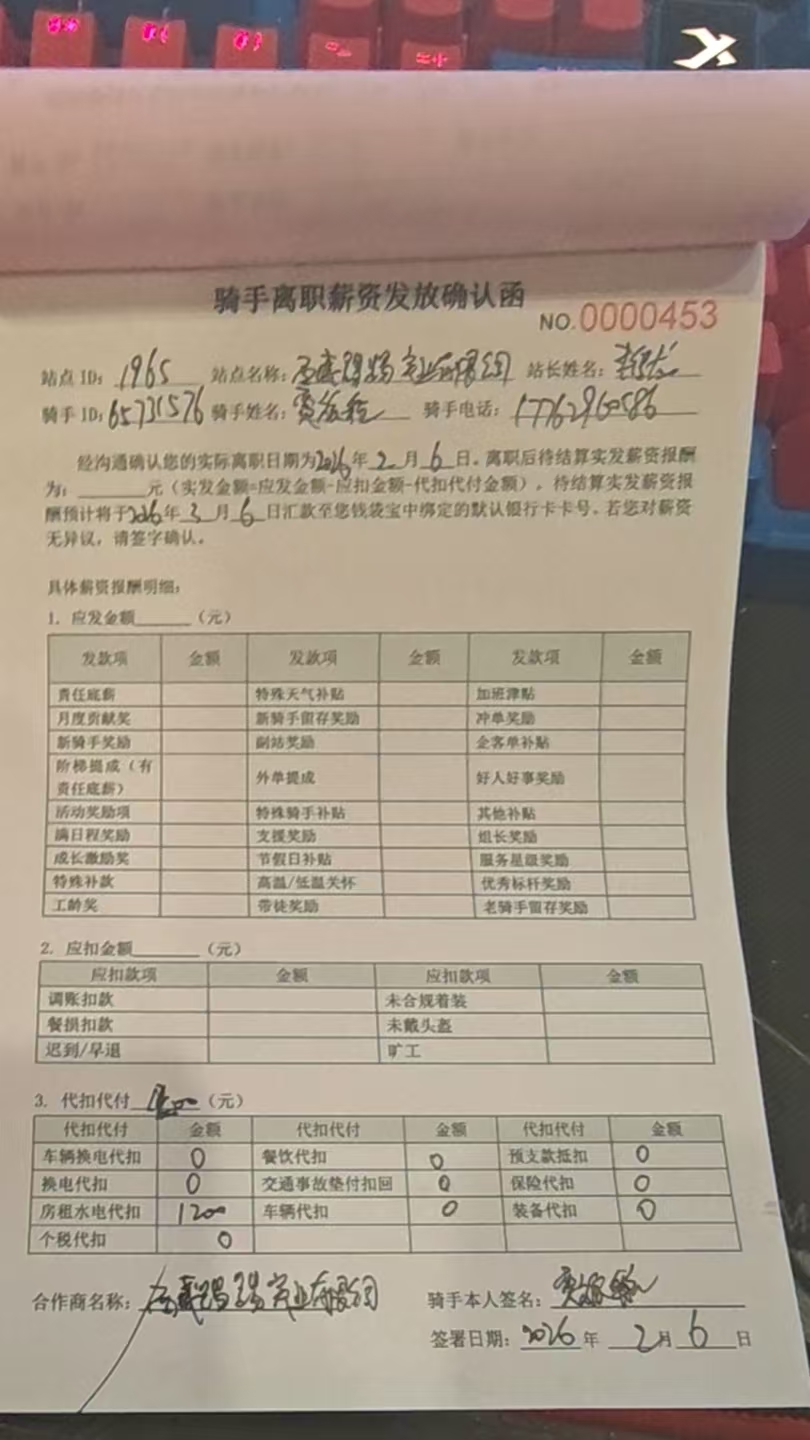 骑手离职薪资发放确认函
NO.0000453
站点ID：1965 站点名称： 站长姓名：
骑手ID：65731576 骑手姓名： 骑手电话：
经沟通确认您的实际离职日期为2026年2月6日。离职后待结算实发薪资报酬
为：______元（实发金额=应发金额-应扣金额-代扣代付金额），待结算实发薪资报
酬预计将于2026年3月6日汇款至您钱袋宝中绑定的默认银行卡卡号。若您对薪资
无异议，请签字确认。
具体薪资报酬明细：
1. 应发金额______（元）
发款项 金额 发款项 金额 发款项 金额
责任底薪 特殊天气补贴 加班津贴
月度贡献奖 新骑手留存奖励 冲单奖励
新骑手奖励 副站奖励 企客单补贴
阶梯提成（有责任底薪） 外单提成 好人好事奖励
活动奖励项 特殊骑手补贴 其他补贴
满日程奖励 支援奖励 组长奖励
成长激励奖 节假日补贴 服务星级奖励
特殊补款 高温/低温关怀 优秀标杆奖励
工龄奖 带徒奖励 老骑手留存奖励
2. 应扣金额______（元）
应扣款项 金额 应扣款项 金额
调账扣款 未合规着装
餐损扣款 未戴头盔
迟到/早退 旷工
3. 代扣代付（元）
代扣代付 金额 代扣代付 金额 代扣代付 金额
车辆换电代扣 0 餐饮代扣 0 预支款抵扣 0
换电代扣 0 交通事故垫付扣回 0 保险代扣 0
房租水电代扣 1200 车辆代扣 0 装备代扣 0
个税代扣 0
合作商名称： 骑手本人签名：
签署日期：2026年2月6日